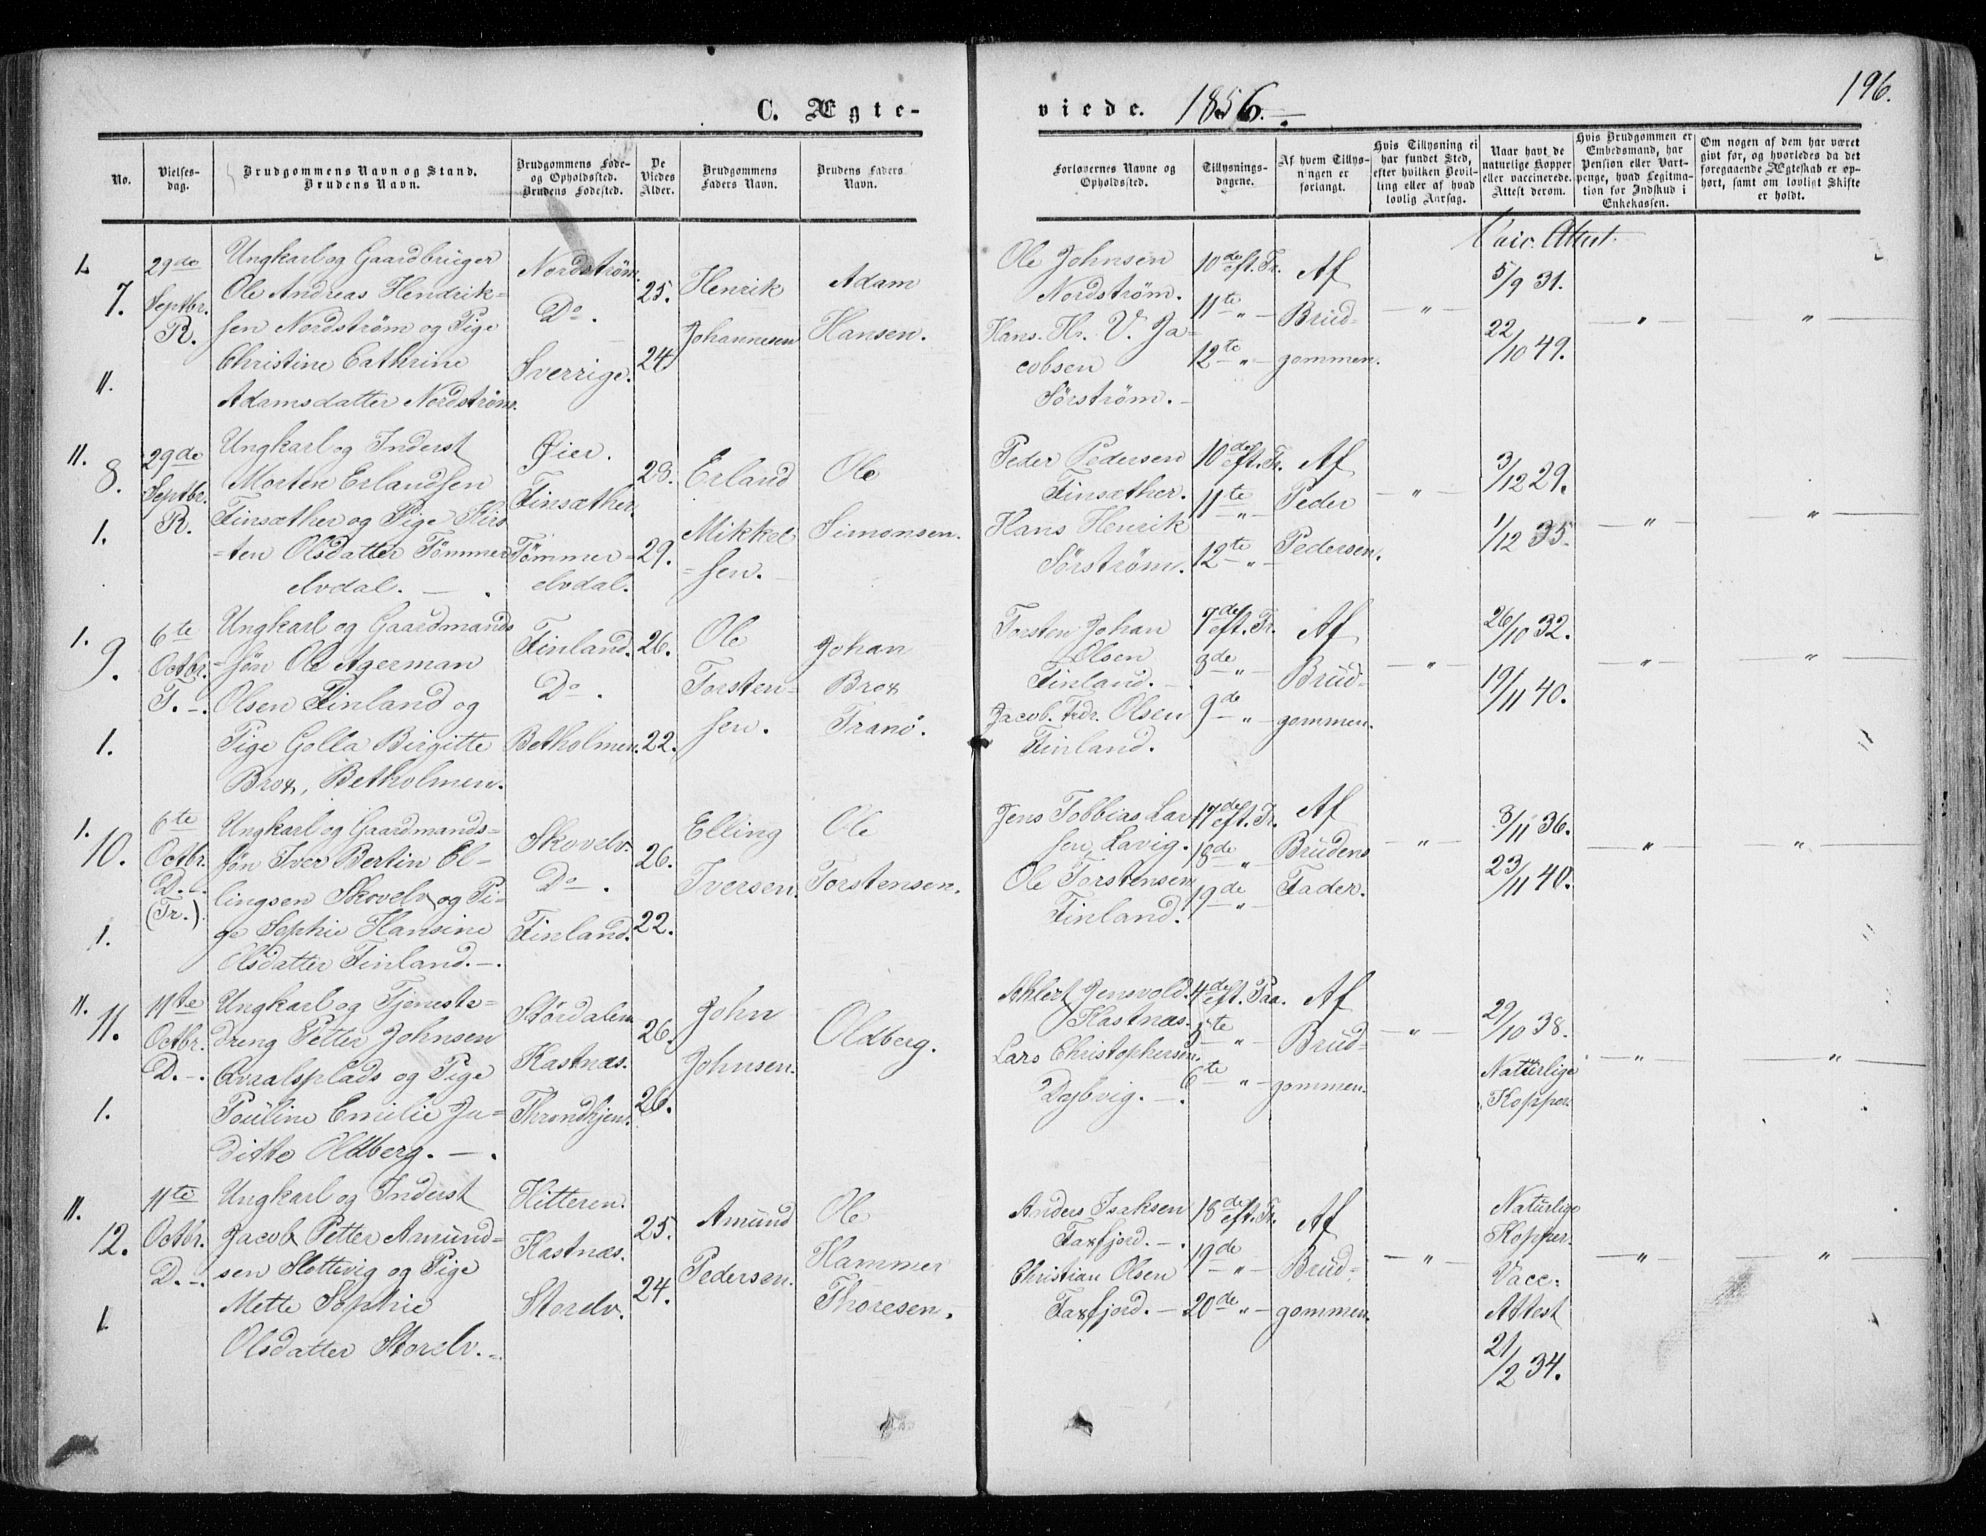 196.
C. Ægte-
viede. 1856.
No.
Vielses-
dag.
Brudgommens Navn og Stand.
Brudens Navn.
Brudgommens Føde-
og Opholdssted.
Brudens Fødested.
De
Viedes
Alder.
Brudgommens
Faders Navn.
Brudens Faders
Navn.
Forlovernes Navne og
Opholdssted.
Tillysnings-
dagene.
Af hvem Tillys-
ningen er
forlangt.
Hvis Tillysning ei
har fundet Sted,
efter hvilken Bevil-
ling eller af hvad
lovlig Aarsag.
Naar havt de
naturlige Kopper
eller vaccinerede.
Attest derom.
Hvis Brudgommen er
Embedsmand, har
Pension eller Vart-
penge, hvad Legitma-
tion for Indskud i
Enkekassen.
Om nogen af dem har været
givt før, og hvorledes da det
foregaaende Ægteskab er op-
hørt, samt om lovligt Skifte
er holdt.
7.
11.
29de
Septbr.
R.
Ungkarl og Gaardbruger
Ole Andreas Hendrik-
sen Nordstrøm og Pige
Christine Cathrine
Adamsdatter Nordstrøm.
Nordstrøm.
Do.
Sverrige.
25.
24.
Henrik
Johannesen
Adam
Hansen.
Ole Johnsen
Nordstrøm.
Hans. Hr. V. Ja-
cobsen
Sørstrøm.
10de eft. Tr.
11te " 
12te " 
Af
Brud-
gommen.
"
Attest.
5/9 31.
22/10 49.
"
"
11.
8.
1.
29de
Septbr.
R.
Ungkarl og Inderst
Morten Erlandsen
Finsæther og Pige Kirs
=ten Olsdatter Tømmer
elvdal.
Øier.
Finsæther.
Tømmer=
elvdal.
28.
29.
Erland
Mikkel
=sen.
Ole
Simonsen.
Peder Pedersen
Finsæther.
Hans Henrik
Sørstrøm.
10de eft. Tr.
11te "
12te "
Af
Peder
Pedersen.
"
3/12 29.
1/12 35.
"
"
1.
9.
1.
6te
Octbr.
T.
Ungkarl og Gaardmands
=søn Ole Agerman
Olsen Finland og
Pige Golla Birgitte
Brox, Betholmen.
Finland.
Do.
Betholmen.
26.
22.
Ole
Torsten-
sen.
Johan
Brox
Tranø.
Torsten Johan
Olsen
Finland.
Jacob. Frdr. Olsen
Finland.
7de eft. Tr.
"
9de "
Af
Brud-
gommen.
"
26/10 32.
19/11 40.
"
"
1.
10.
1.
6te
Octbr.
D.
(Tr.)
Ungkarl og Gaardmands-
søn Iver Bertin El-
lingsen Skovelv og Pi-
ge Sophie Hansine
Olsdatter Finland.
Skovelv.
Do.
Finland.
26.
22.
Elling
Iversen.
Ole
Torstensen.
Jens Tobbias Lar
sen, Lavig.
Ole Torstensen
Finland.
17de eft. Tr.
18de "
19de "
Af
Brudens
Fader.
"
3/11 36.
23/11 40.
"
"
11.
11.
1.
11te
Octbr.
D.
Ungkarl og Tjeneste-
dreng Petter Johnsen
Qvaalsplads og Pige
Pouline Emilie Ju-
ditte Oldberg.
Størdalen
Kastnæs.
Throndhjem.
26.
26.
John
Johnsen.
Oldberg.
Ahlert Jensvold.
Kastnæs.
Lars Christophersen
4de eft. Paa.
5te "
6te "
Af
Brud-
gommen.
"
29/10 38.
Naturlige
Kopper.
"
"
11.
12.
1
11te
Octbr.
D.
Ungkarl og Inderst
Jacob Petter Amund-
sen Slottevig og Pige
Mette Sophie
Olsdatter Storelv.
Hitteren.
Kastnæs.
Storelv.
25.
24.
Amund
Pedersen.
Ole
Hammer
Thoresen.
Anders Isaksen
Faxfjord.
Christian Olsen
Faxfjord.
18de eft. Tr.
19de "
20de "
Af
Brud-
gommen.
"
Naturlige
Kopper.
Vacc.
Attest
21/2 34.
"
"